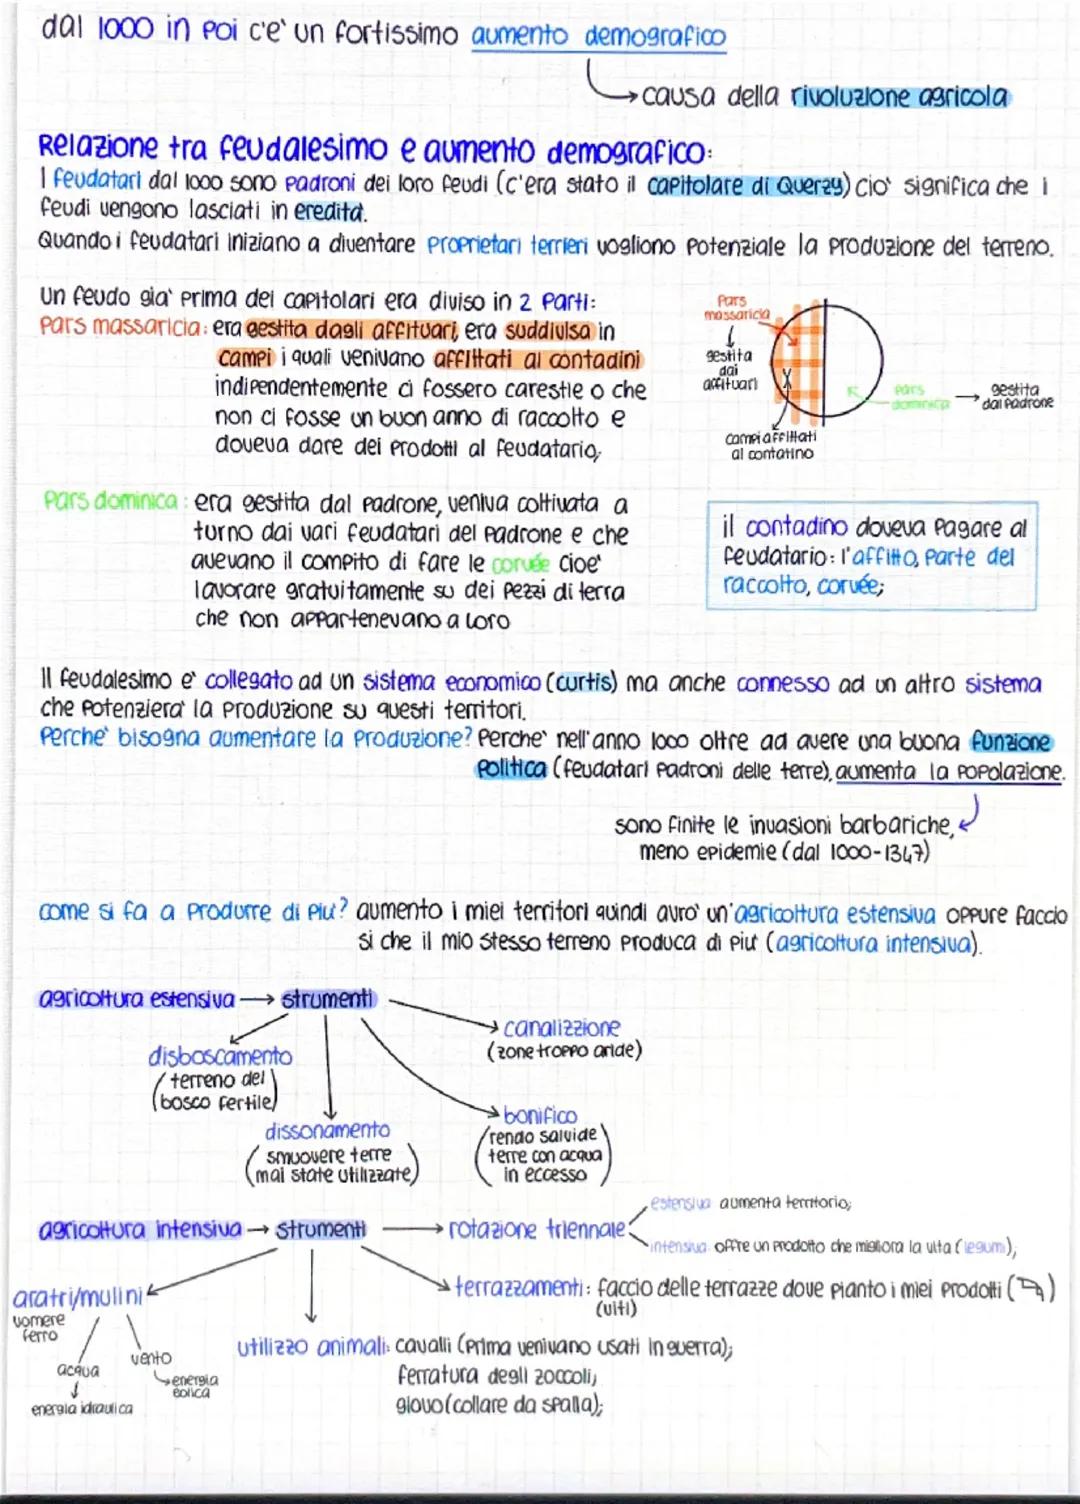 dal 1000 in poi c'e' un fortissimo aumento demografico
causa della rivoluzione agricola
Relazione tra feudalesimo e aumento demografico:
I feudatari dal 1000 sono padroni dei loro feudi (c'era stato il capitolare di Querzy) cio' significa che i
feudi vengono lasciati in eredita'.
Quando i feudatari iniziano a diventare proprietari terrieri vogliono potenziale la produzione del terreno.
Un feudo gia' prima dei capitolari era diviso in 2 parti:
Pars massaricia: era gestita dagli affituari, era suddivisa in
campi i quali venivano affittati ai contadini
indipendentemente ci fossero carestie o che
non ci fosse un buon anno di raccolto e
doveva dare dei prodotti al feudatario;
Pars massaricia
gestita
dai
affituari
campi affittati
al contatino
pars
dominica
gestita
dal padrone
Pars dominica: era gestita dal padrone, veniva coltivata a
turno dai vari feudatari del padrone e che
avevano il compito di fare le corvée cioe'
lavorare gratuitamente su dei pezzi di terra
che non appartenevano a loro
il contadino doveva pagare al
feudatario: l'affitto, parte del
raccolto, corvée;
Il feudalesimo e' collegato ad un sistema economico (curtis) ma anche connesso ad un altro sistema
che potenziera' la produzione su questi territori.
Perche' bisogna aumentare la produzione? Perche' nell'anno 1000 oltre ad avere una buona funzione
politica (feudatari padroni delle terre), aumenta la popolazione.
sono finite le invasioni barbariche,
meno epidemie (dal 1000-1347)
come si fa a produrre di piu'? aumento i miei territori quindi avro' un'agricoltura estensiva oppure faccio
si che il mio stesso terreno produca di piu' (agricoltura intensiva).
agricoltura estensiva → strumenti
canalizzione
(zone troppo aride)
disboscamento
(terreno del
bosco fertile)
bonifico
(rendo salvide
terre con acqua
in eccesso)
dissonamento
(smuovere terre
mai state utilizzate)
agricoltura intensiva → strumenti → rotazione triennale:
estensiva: aumenta territorio;
intensiva: offre un prodotto che migliora la vita (legumi);
terrazzamenti: faccio delle terrazze dove pianto i miei prodotti
(viti)
aratri/mulini
vomere
ferro
acqua
energia idraulica
vento
energia
eolica
utilizzo animali: cavalli (prima venivano usati in guerra);
ferratura degli zoccoli;
giovo (collare da spalla);